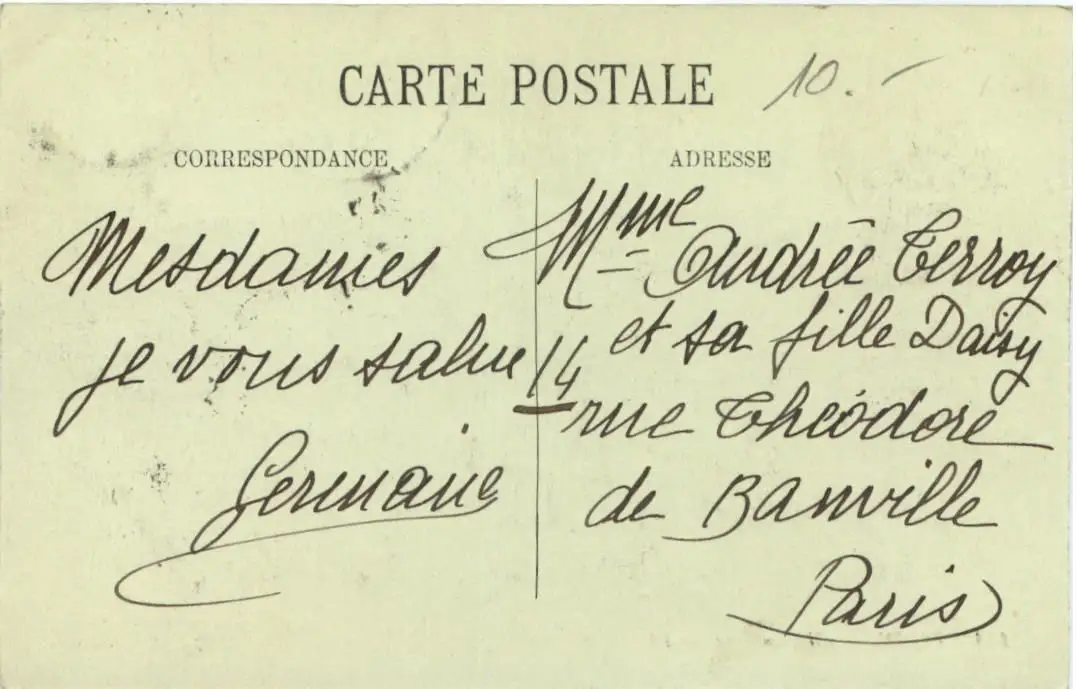 CARTE POSTALE
10.-
CORRESPONDANCE
ADRESSE
Mesdames
je vous salue
Germaine
Mme Andrée Terroy
et sa fille Daisy
14 rue Théodore
de Banville
Paris